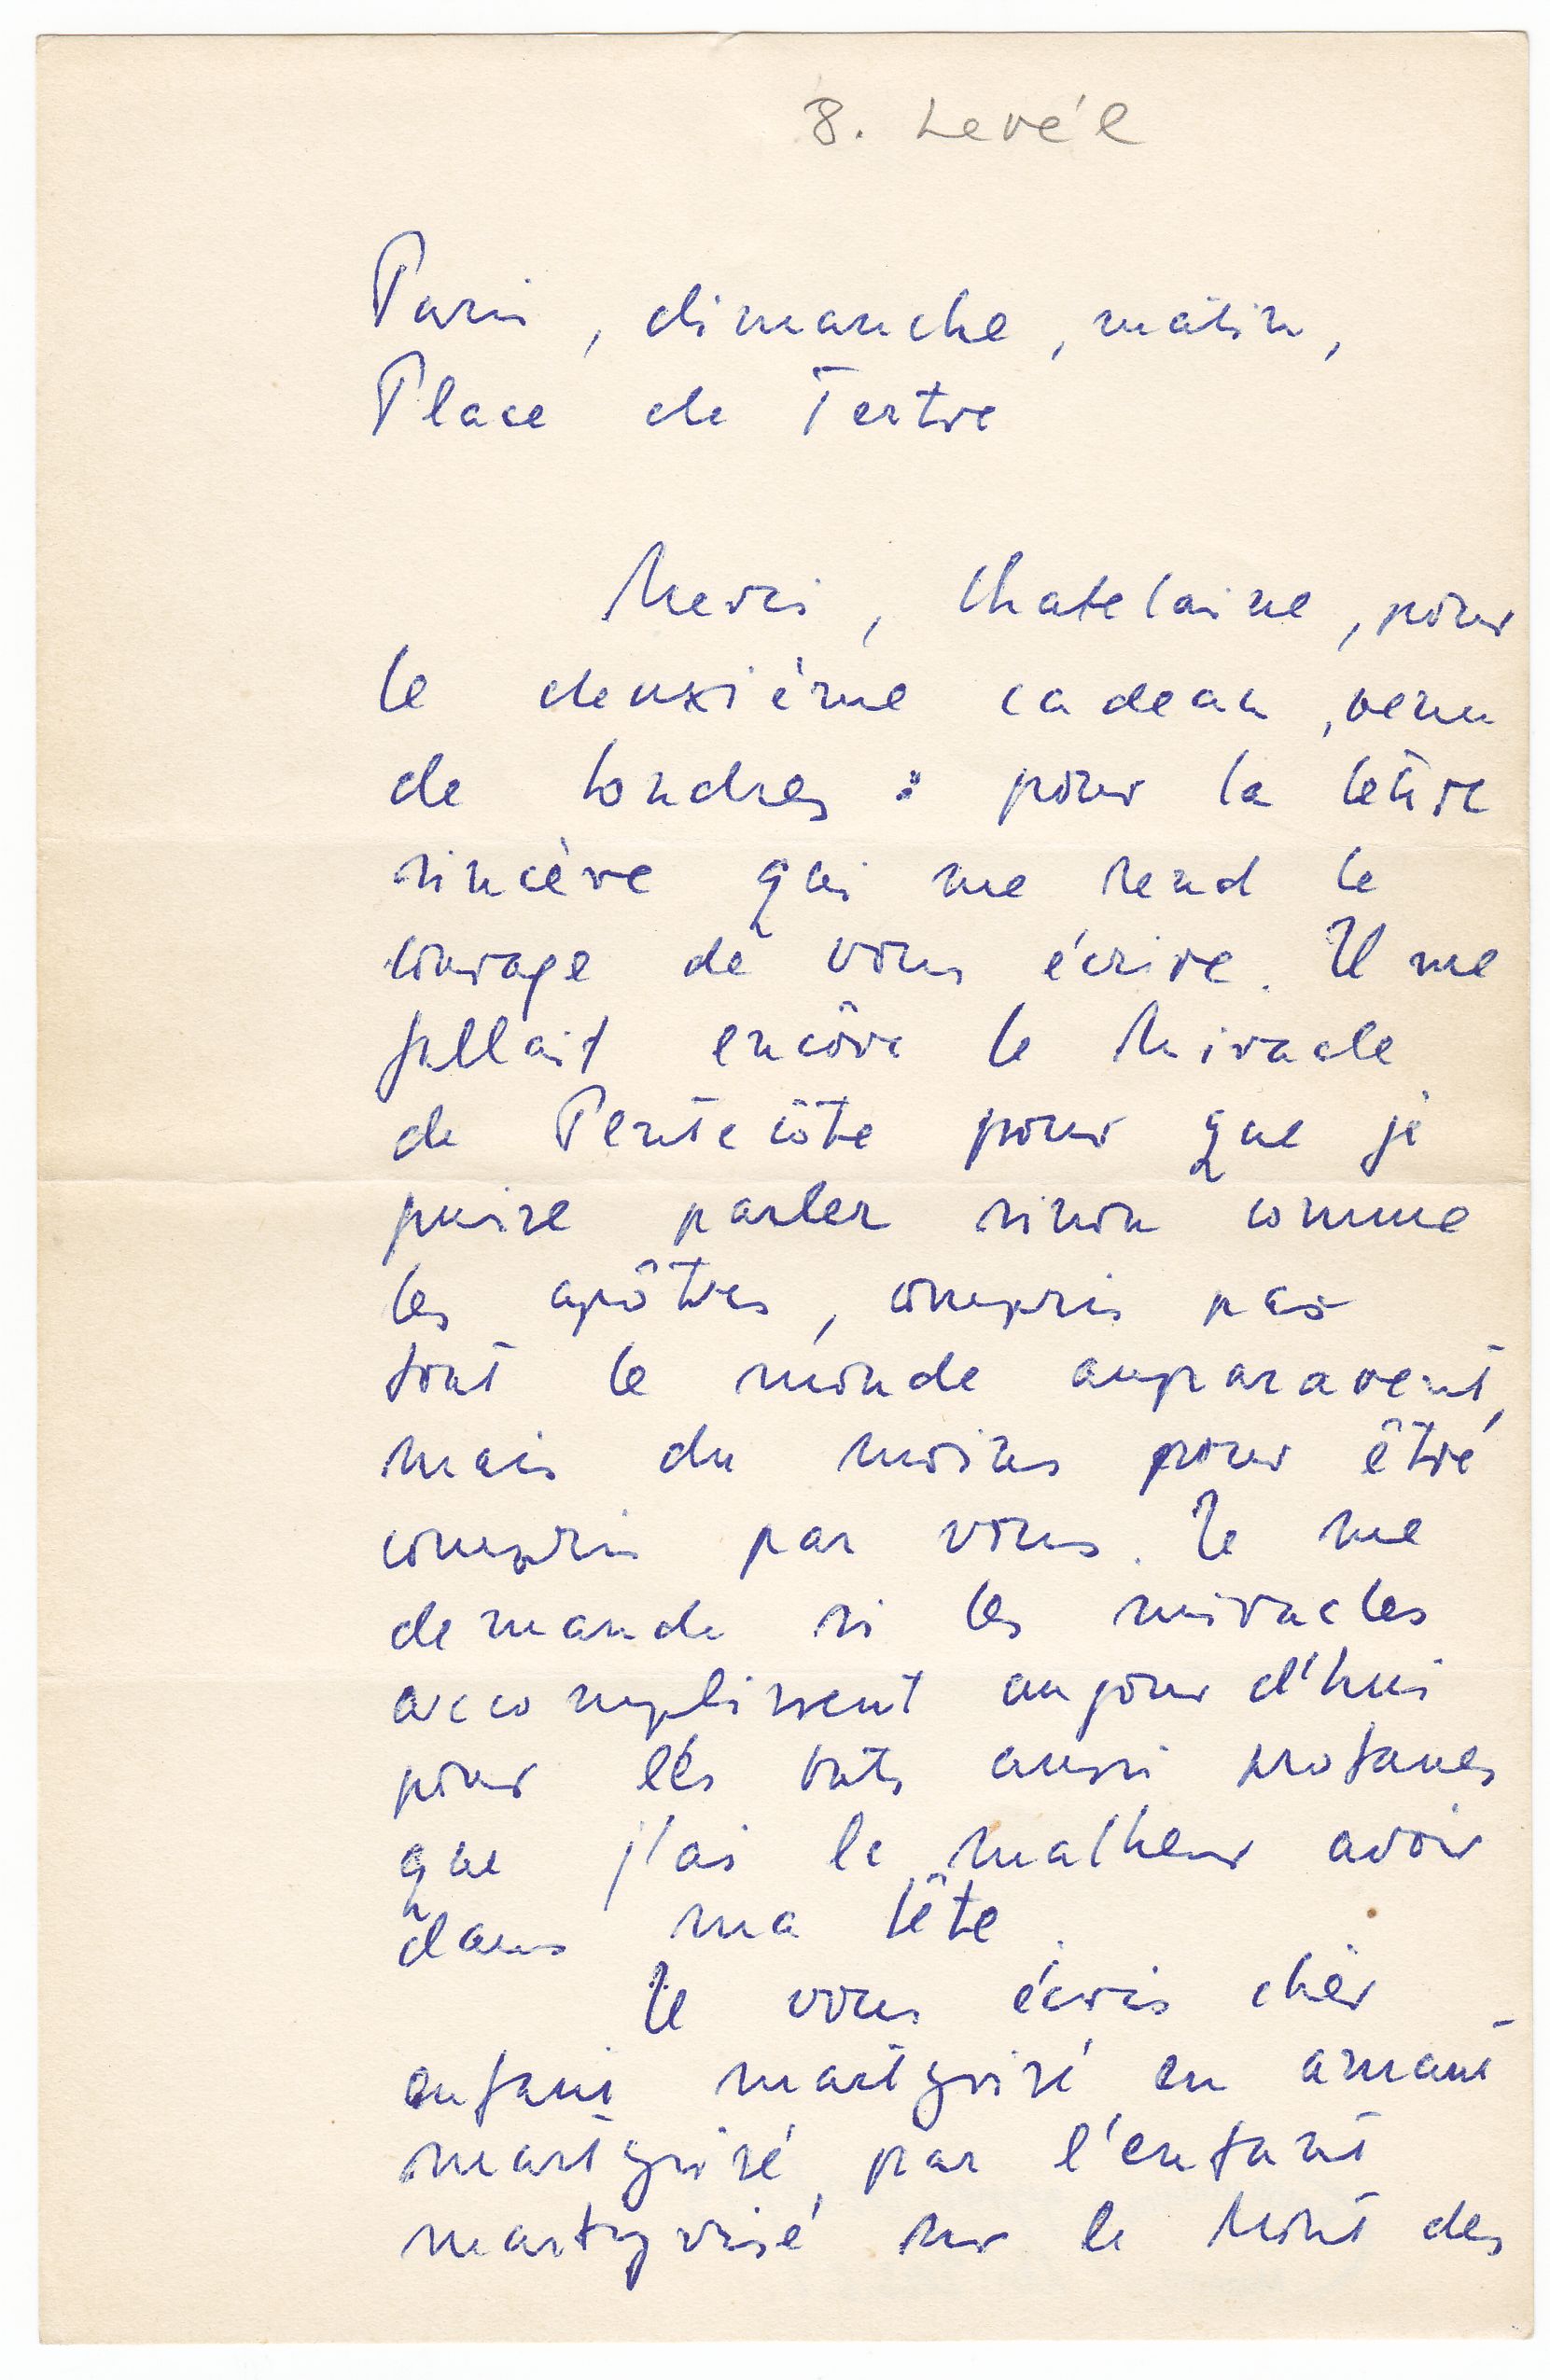 8. Levél
Paris, dimanche, matin,
Place de Tertre
Merci, Chatelaine, pour
le deuxième cadeau, venu
de Londres : pour la lettre
sincère qui me rend le
courage de vous écrire. Il me
fallait encôre le Miracle
de Pentecôte pour que je
puisse parler sinon comme
les apôtres, compris par
tout le monde auparavent,
mais du moins pour être
compris par vous. Je me
demande si les miracles
accomplissent aujourd'hui
pour les buts aussi profanes
que j'ai le malheur avoir
dans ma tête.
Je vous écris chèr
enfant martyrisé en amant
martyrisé par l'enfant
martyrisé sur le Mont des